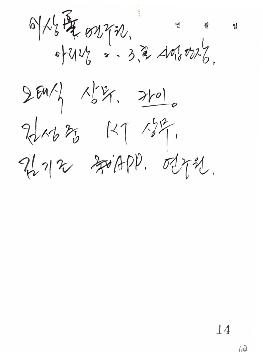 년 월 일
이상률 연구원.
아리랑 2. 3호 사업단장.
오태식 상무. 카이.
김성중 KT 상무.
김기근 APP. 연구원.
14